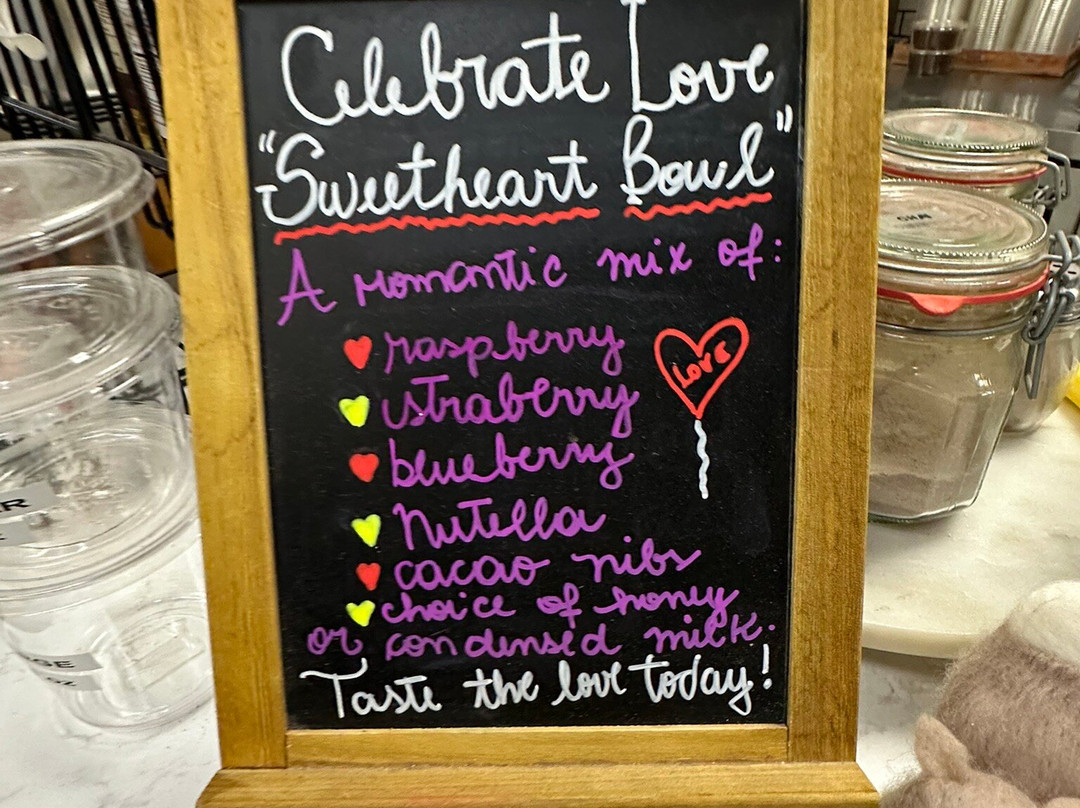 Celebrate Love
"Sweetheart Bowl"
A romantic mix of:
raspberry
straberry
LOVE
blueberry
Nutella
cacao nibs
choice of honey
or condensed milk.
Taste the love today!
CHAI